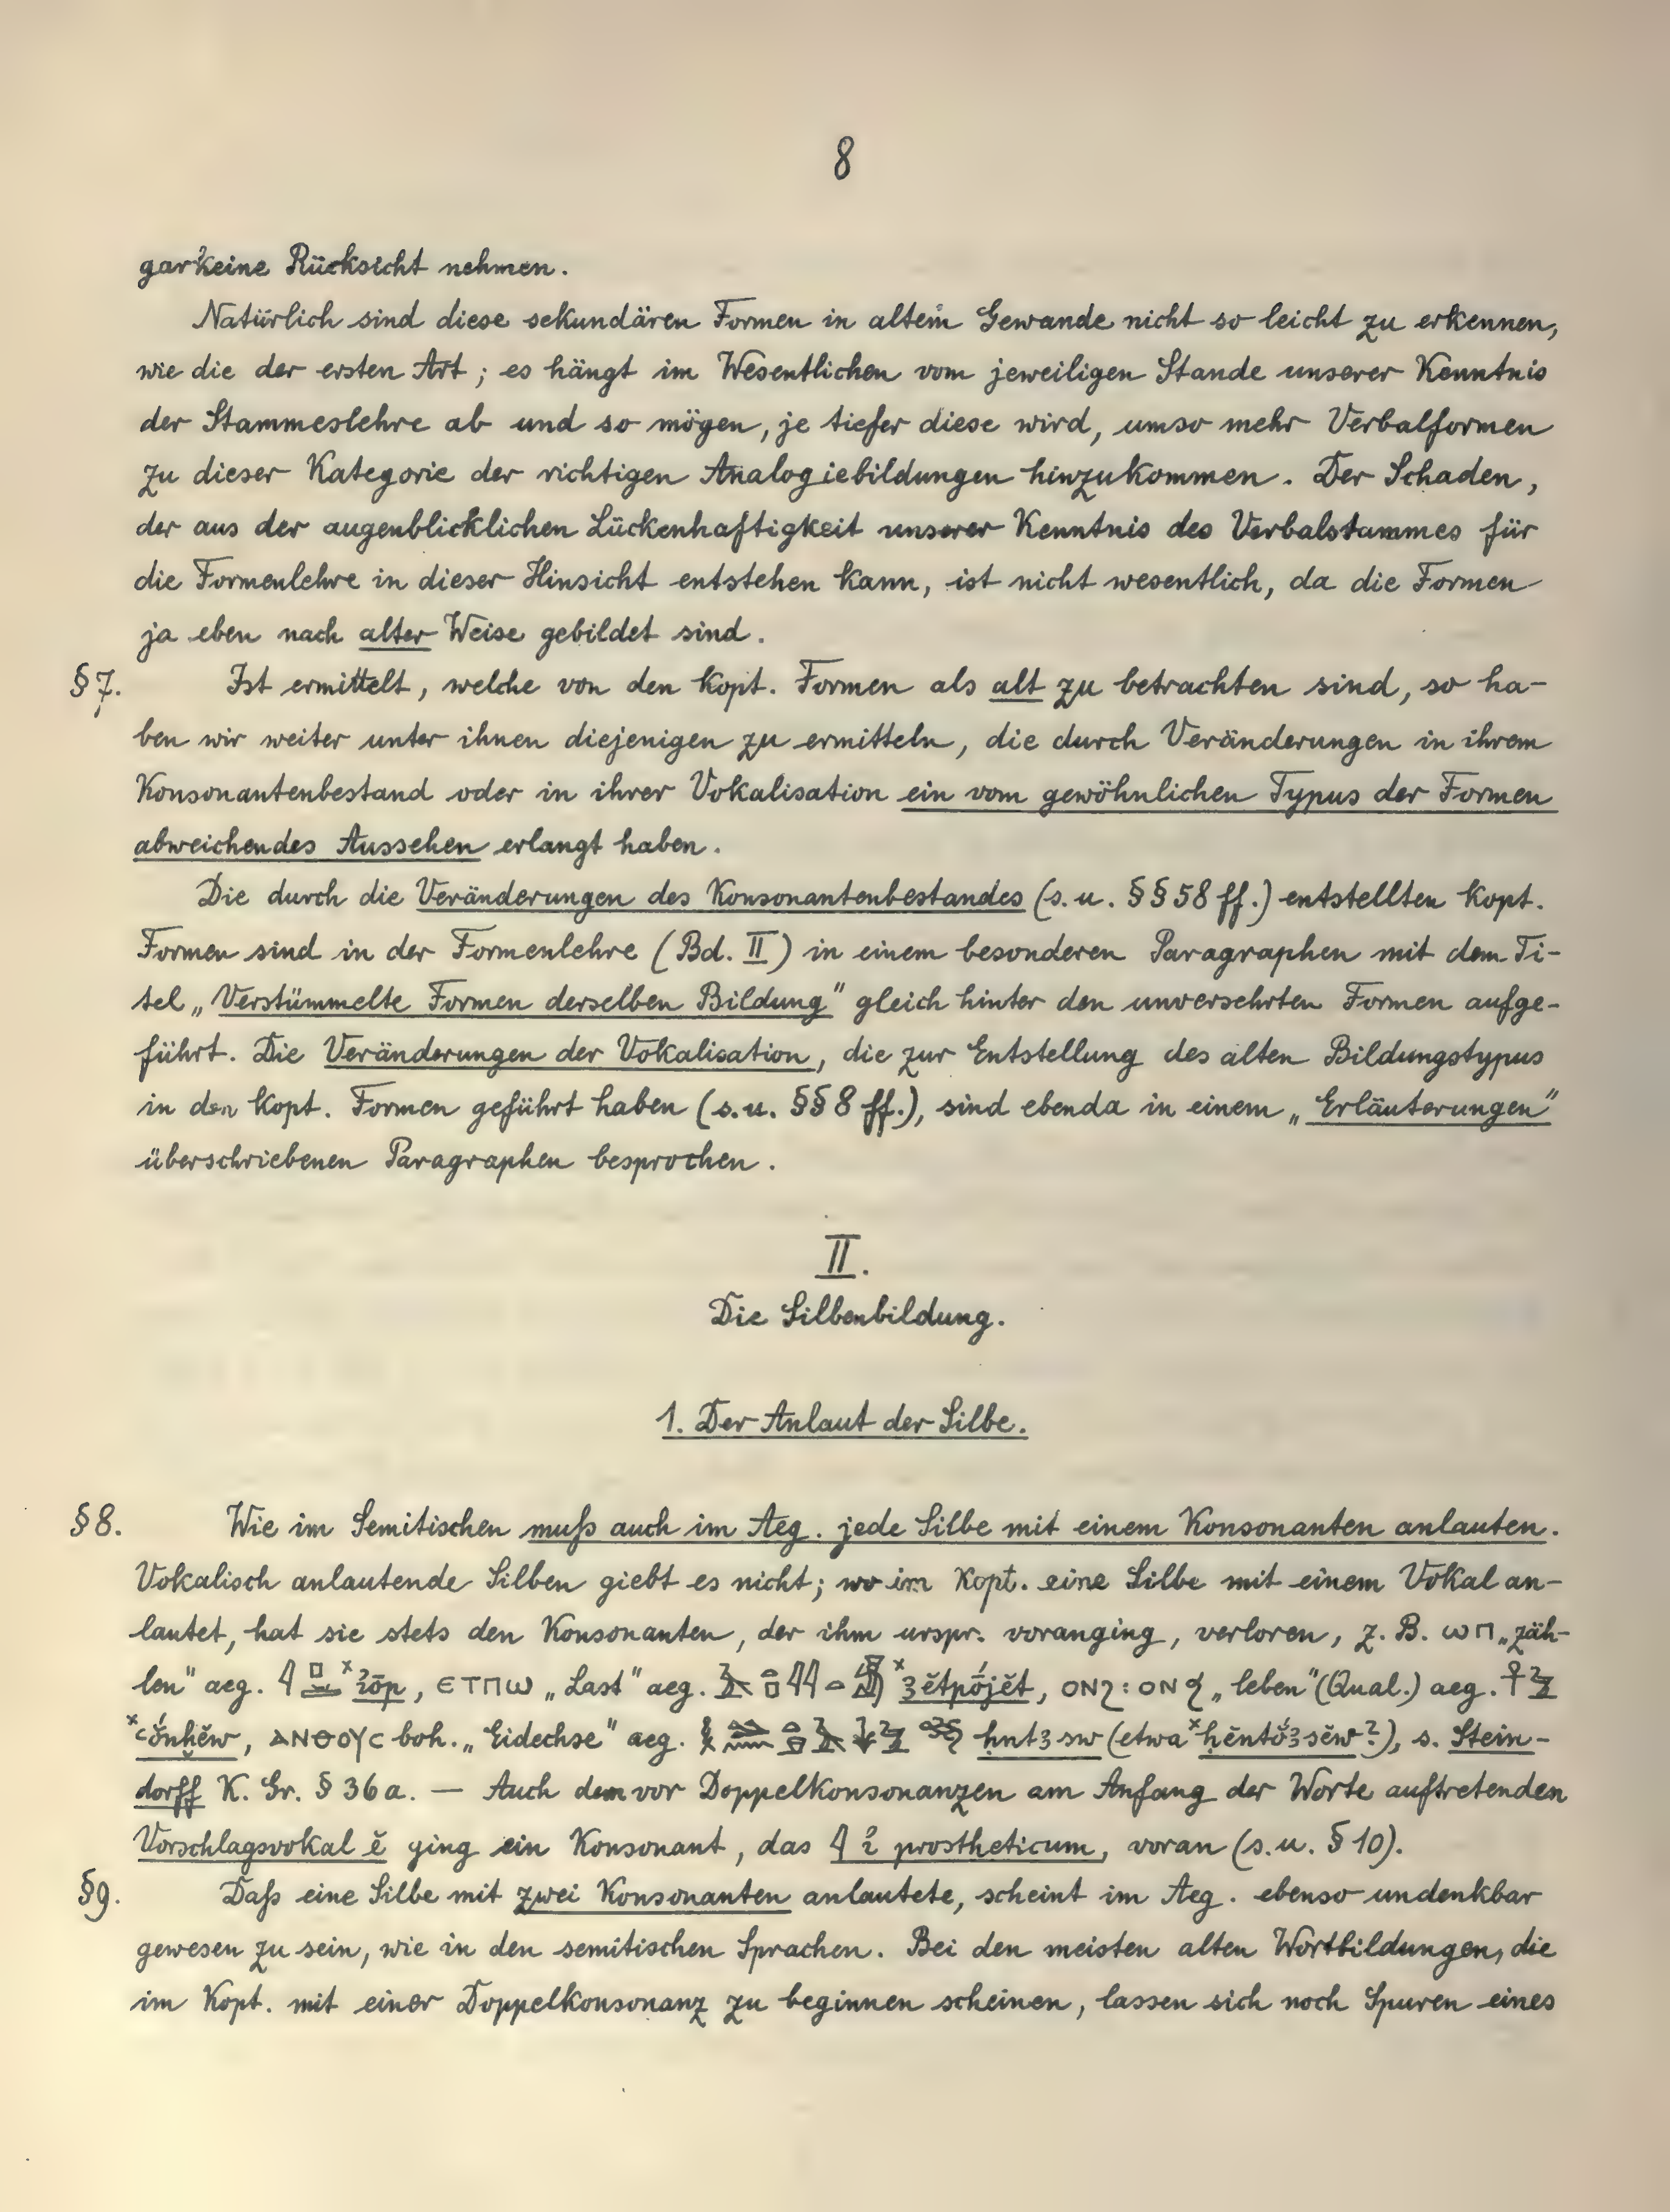 8
gar keine Rücksicht nehmen.
Natürlich sind diese sekundären Formen in altem Gewande nicht so leicht zu erkennen,
wie die der ersten Art; es hängt im Wesentlichen vom jeweiligen Stande unserer Kenntnis
der Stammeslehre ab und so mögen, je tiefer diese wird, umso mehr Verbalformen
zu dieser Kategorie der richtigen Analogiebildungen hinzukommen. Der Schaden,
der aus der augenblicklichen Lückenhaftigkeit unserer Kenntnis des Verbalstammes für
die Formenlehre in dieser Hinsicht entstehen kann, ist nicht wesentlich, da die Formen
ja eben nach alter Weise gebildet sind.
§7. Ist ermittelt, welche von den kopt. Formen als alt zu betrachten sind, so ha-
ben wir weiter unter ihnen diejenigen zu ermitteln, die durch Veränderungen in ihrem
Konsonantenbestand oder in ihrer Vokalisation ein vom gewöhnlichen Typus der Formen
abweichendes Aussehen erlangt haben.
Die durch die Veränderungen des Konsonantenbestandes (s. u. §§ 58 ff.) entstellten kopt.
Formen sind in der Formenlehre (Bd. II) in einem besonderen Paragraphen mit dem Ti-
tel „Verstümmelte Formen derselben Bildung" gleich hinter den unversehrten Formen aufge-
führt. Die Veränderungen der Vokalisation, die zur Entstellung des alten Bildungstypus
in den kopt. Formen geführt haben (s. u. §§ 8 ff.), sind ebenda in einem „Erläuterungen"
überschriebenen Paragraphen besprochen.
II.
Die Silbenbildung.
1. Der Anlaut der Silbe.
§8. Wie im Semitischen muß auch im Aeg. jede Silbe mit einem Konsonanten anlauten.
Vokalisch anlautende Silben giebt es nicht; wo im Kopt. eine Silbe mit einem Vokal an-
lautet, hat sie stets den Konsonanten, der ihm urspr. voranging, verloren, z. B. ⲱⲡ „zäh-
len" aeg. ˣꞽōp, ⲉⲧⲡⲱ „Last" aeg. ˣꜣĕtpójĕt, ⲟⲛϩ : ⲟⲛⳉ „leben" (Qual.) aeg.
ˣꜥŏ́nḫĕw, ⲁⲛⲑⲟⲩⲥ boh. „Eidechse" aeg. ḥntꜣsw (etwa ˣḥĕntŏ́ꜣsĕw?), s. Stein-
dorff K. Gr. § 36 a. — Auch dem vor Doppelkonsonanzen am Anfang der Worte auftretenden
Vorschlagsvokal ĕ ging ein Konsonant, das 𓇋 ꞽ prostheticum, voran (s. u. § 10).
§9. Daß eine Silbe mit zwei Konsonanten anlautete, scheint im Aeg. ebenso undenkbar
gewesen zu sein, wie in den semitischen Sprachen. Bei den meisten alten Wortbildungen, die
im Kopt. mit einer Doppelkonsonanz zu beginnen scheinen, lassen sich noch Spuren eines